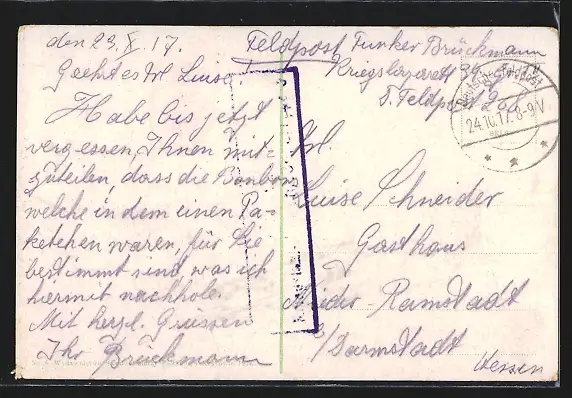 den 23. X. 17.
Geehrtes Frl Luise!
Habe bis jetzt
vergessen, Ihnen mit-
zuteilen, dass die Bonbon
welche in dem einen Pa-
ketchen waren, für Sie
bestimmt sind, was ich
hiermit nachhole.
Mit herzl. Grüssen
Ihr Brückmann
Feldpost Funker Brückmann
Kriegslazarett
D. Feldpost
24.10.17. 8-9V
Frl.
Luise Schneider
Gasthaus
Nieder-Ramstadt
b/Darmstadt
Hessen